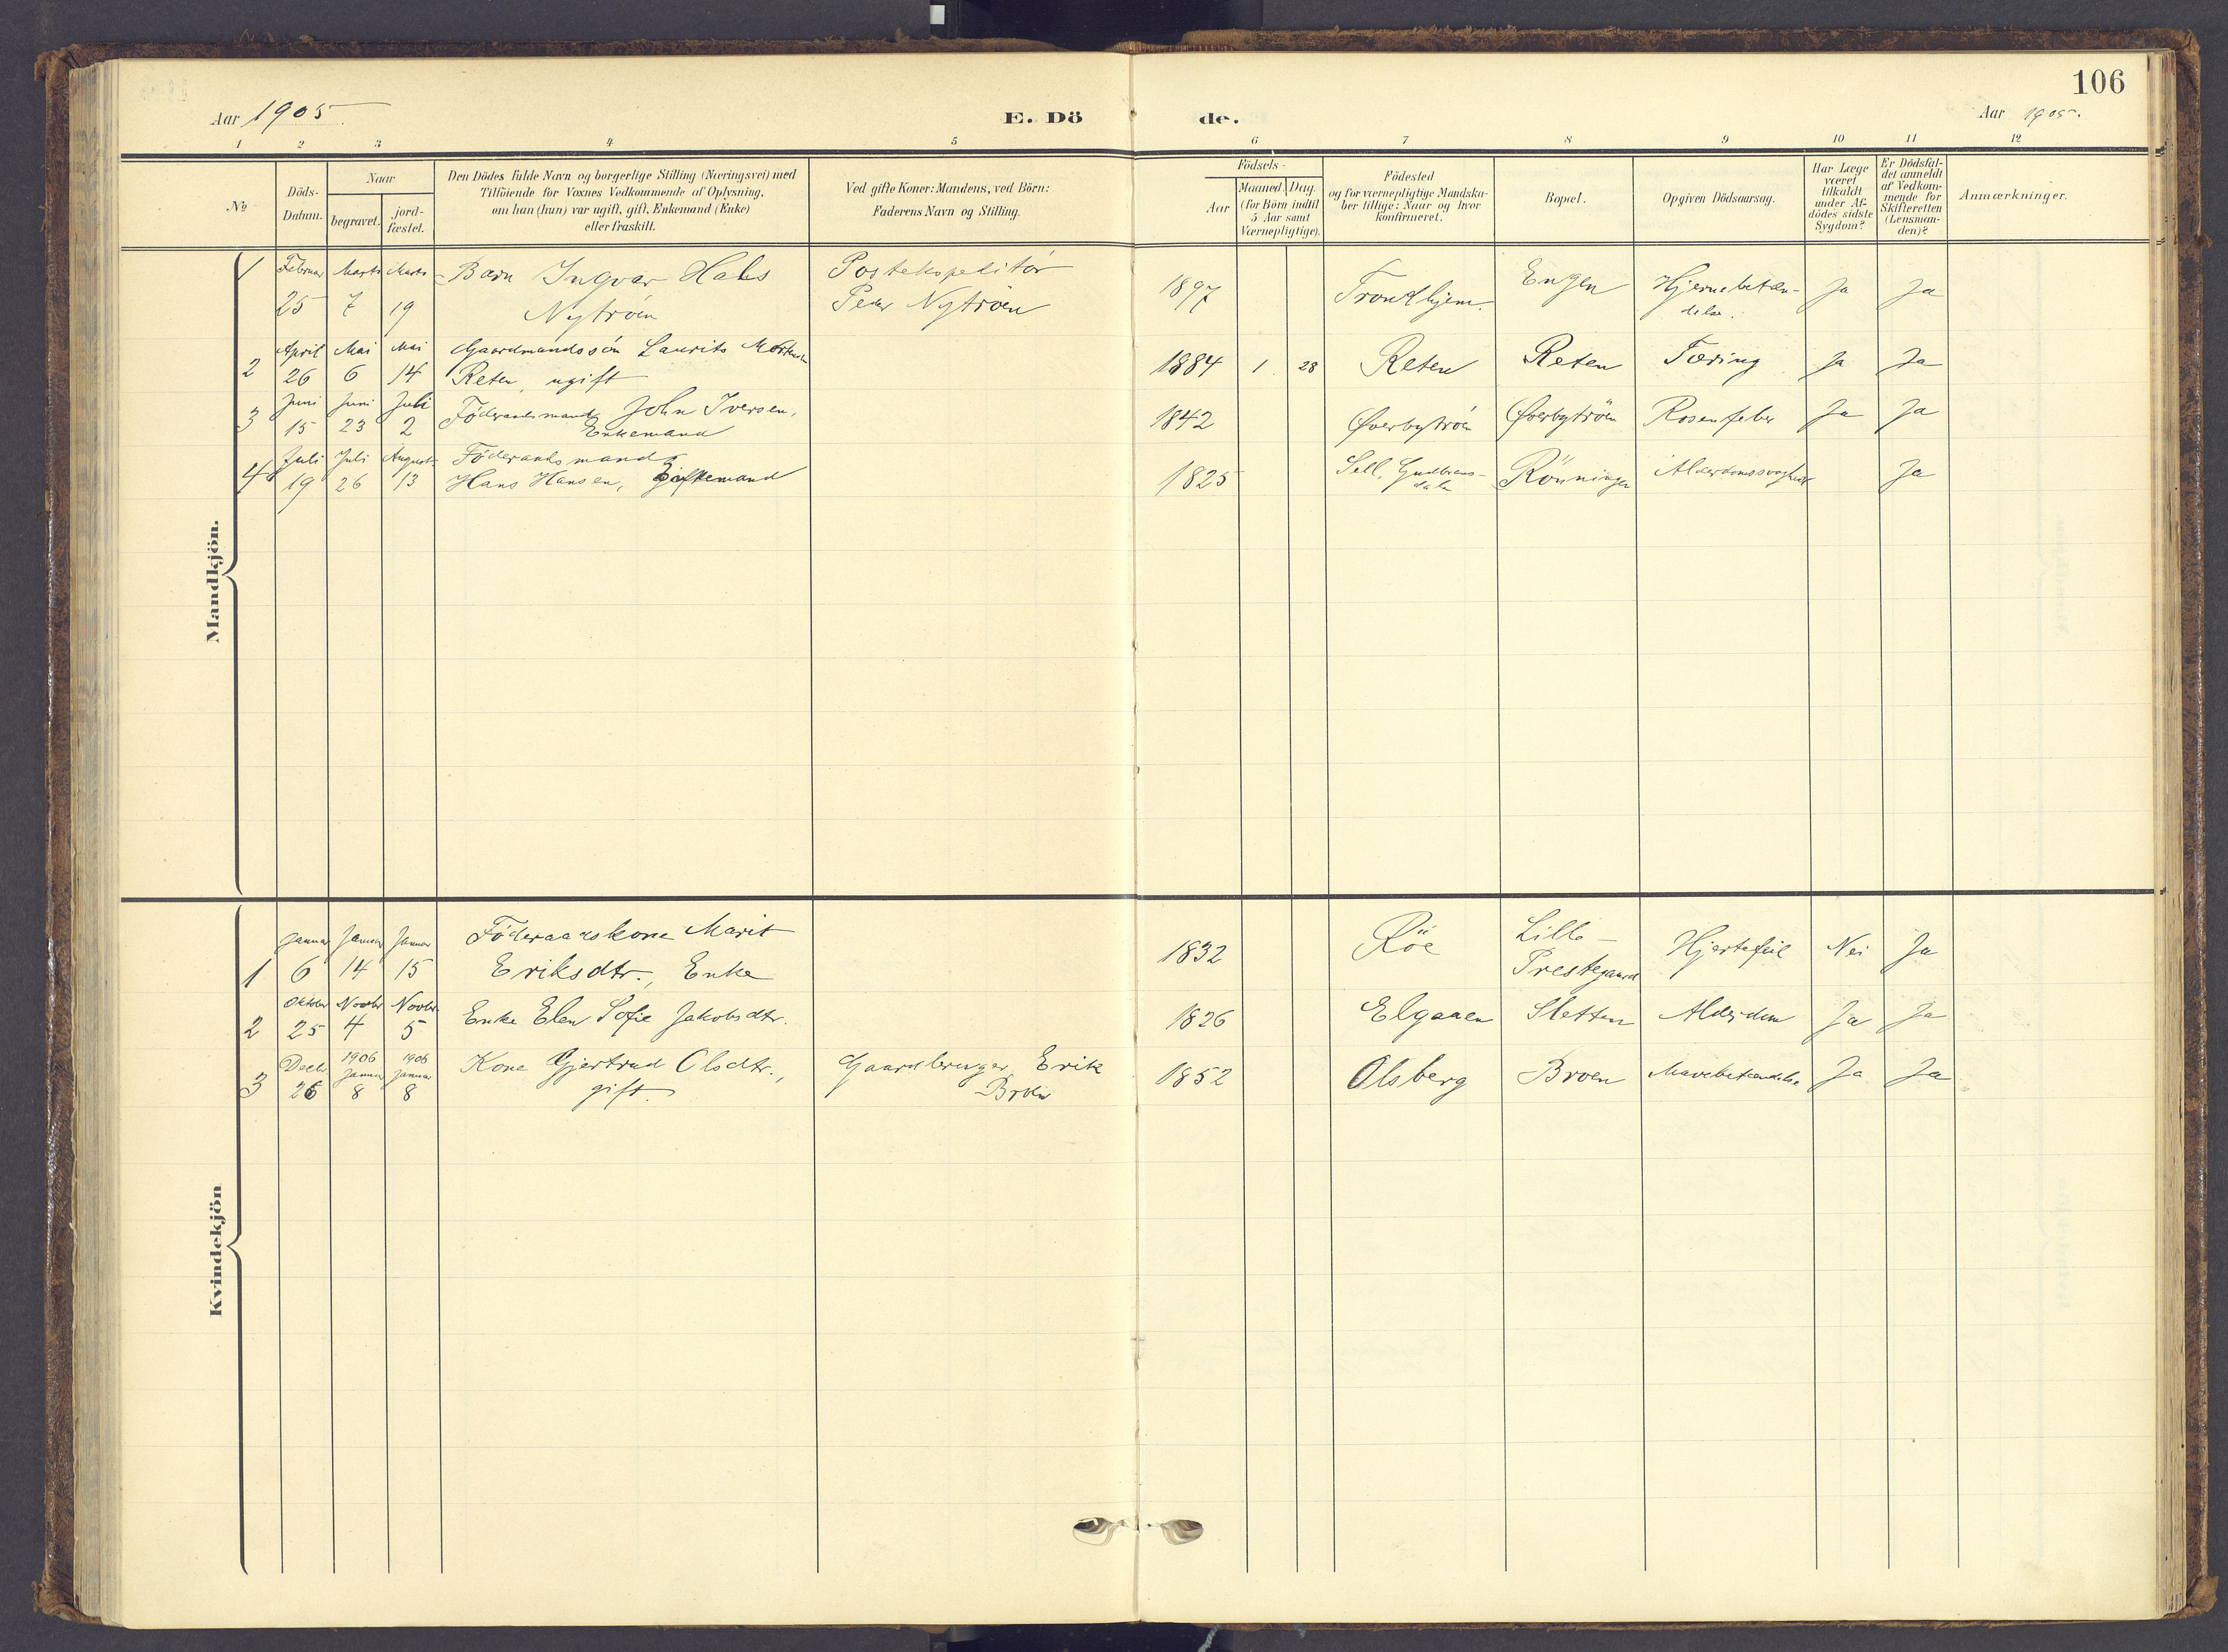 106
Aar 1905.
E. Döde.
Aar 1905.
1 2 3 4 5 6 7 8 9 10 11 12
No
Döds-Datum.
Naar
begravet.
jord-fæstet.
Den Dödes fulde Navn og borgerlige Stilling (Næringsvei) med
Tilföiende for Voxnes Vedkommende af Oplysning,
om han (hun) var ugift, gift, Enkemand (Enke)
eller fraskilt.
Ved gifte Koner: Mandens, ved Börn:
Faderens Navn og Stilling.
Födsels-
Aar
Maaned. Dag.
(for Börn indtil
5 Aar samt
Værnepligtige).
Födested
og for værnepligtige Mandska-
ber tillige: Naar og hvor
konfirmeret.
Bopæl.
Opgiven Dödsaarsag.
Har Læge
været
tilkaldt
under Af-
dödes sidste
Sygdom?
Er Dödsfal-
det anmeldt
af Vedkom-
mende for
Skifteretten
(Lensman-
den)?
Anmærkninger.
Mandkjön.
1 Februar Marts Marts Barn Ingvar Hals Postekspeditör 1897 Trondhjem. Engen Hjernebetæn- Ja Ja
25 7 19 Nytröen Peder Nytröen delse.
April Mai Mai Gaardmandssön Laurits
2 26 6 14 Reten, ugift 1884 1 28 Reten Reten Tæring Ja Ja
Juni Juni Juli Föderaadsmand John Iversen,
3 15 23 2 Enkemand 1842 Øverbytröen Øverbytröen Rosenfeber Ja Ja
Juli Juli August Föderaadsmand
4 19 26 13 Hans Hansen, 1825 Sell, Gudbrans- Rönningen Alderdomssvaghed Ja
dalen
Kvindekjön
Januar Januar Januar Föderaadskone Marit Lille-
1 6 14 15 Eriksdtr., Enke 1832 Röe Prestegaard Hjertefeil Nei Ja
Oktober Novbr Novbr.
2 25 4 5 Enke Elen Sofie Jakobsdtr. 1826 Elgaaen Sletten Alderdom Ja Ja
Decbr 1906 Januar 1906 Januar Kone Gjertrud Olsdtr., Gaardbruger Erik
3 26 8 8 gift. Broen 1852 Olsberg Broen Mavebetændelse Ja Ja